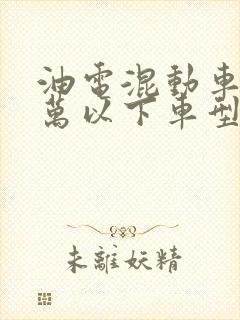 油電混動車
萬以下車型
未離妖精